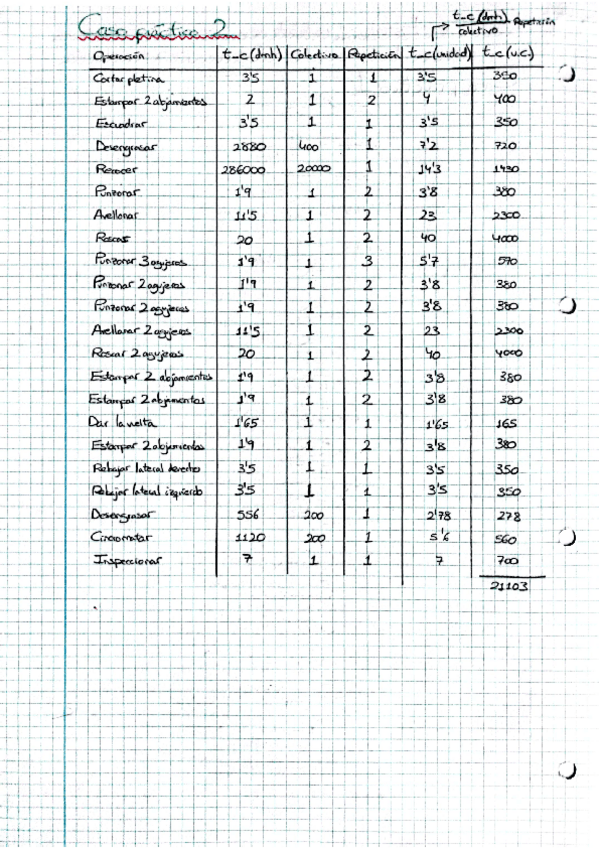 Caso práctico 2
t_c (dmh) / colectivo · Repetición
Operación t_c (dmh) Colectivo Repetición t_c (unidad) t_c (u.c.)
Cortar pletina 3'5 1 1 3'5 350
Estampar 2 alojamientos 2 1 2 4 400
Escuadrar 3'5 1 1 3'5 350
Desengrasar 2880 400 1 7'2 720
Recocer 286000 20000 1 14'3 1430
Punzonar 1'9 1 2 3'8 380
Avellanar 11'5 1 2 23 2300
Roscar 20 1 2 40 4000
Punzonar 3 agujeros 1'9 1 3 5'7 570
Punzonar 2 agujeros 1'9 1 2 3'8 380
Punzonar 2 agujeros 1'9 1 2 3'8 380
Avellanar 2 agujeros 11'5 1 2 23 2300
Roscar 2 agujeros 20 1 2 40 4000
Estampar 2 alojamientos 1'9 1 2 3'8 380
Estampar 2 alojamientos 1'9 1 2 3'8 380
Dar la vuelta 1'65 1 1 1'65 165
Estampar 2 alojamientos 1'9 1 2 3'8 380
Rebajar lateral derecho 3'5 1 1 3'5 350
Rebajar lateral izquierdo 3'5 1 1 3'5 350
Desengrasar 556 200 1 2'78 278
Cincromatar 1120 200 1 5'6 560
Inspeccionar 7 1 1 7 700
21103